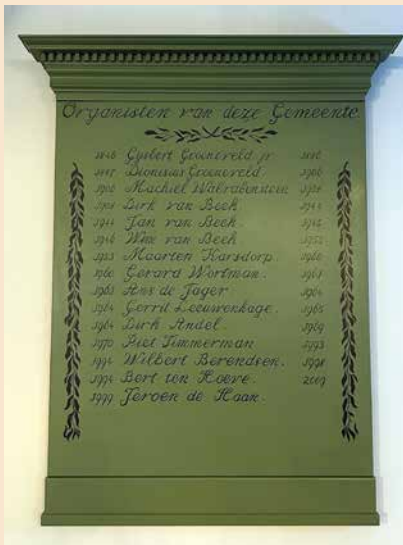 Organisten van deze Gemeente
Gysbert Groeneveld jr.
Dionisius Groeneveld
Machiel Walrabenstein
Dirk van Beek
1944 Jan van Beek.
1946 Wim van Beek
1953 Maarten Karsdorp. 1960
1960 Gerard Wortman. 1963
1963 Ans de Jager 1964
1964 Gerrit Leeuwenhage. 1965
1964 Dirk Andel. 1969
1970 Piet Timmerman 1993
1994 Wilbert Berendsen. 1998
1994 Bert ten Hoeve. 2009
1999 Jeroen de Haan.